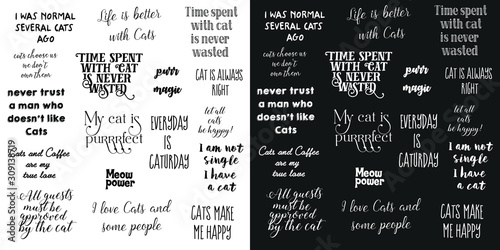 I WAS NORMAL
SEVERAL CATS
AGO
Life is better
with Cat
Time spent
with cat
is never
wasted
cats choose us
we don't
own them
TIME SPENT
WITH CAT
IS NEVER
WASTED
purr
magic
CAT IS ALWAYS
RIGHT
never trust
a man who
doesn't like
Cats
My cat is
purrrfect
EVERYDAY
IS
CATURDAY
let all
cats
be happy!
Cats and Coffee
are my
true love
Meow
power
I am not
single
I have
a cat
All guests
must be
approved
by the cat
I love Cats and
some people
CATS MAKE
ME HAPPY
I WAS NORMAL
SEVERAL CATS
AGO
Life is better
with Cat
Time spent
with cat
is never
wasted
cats choose us
we don't
own them
TIME SPENT
WITH CAT
IS NEVER
WASTED
purr
magic
CAT IS ALWAYS
RIGHT
never trust
a man who
doesn't like
Cats
My cat is
purrrfect
EVERYDAY
IS
CATURDAY
let all
cats
be happy!
Cats and Coffee
are my
true love
Meow
power
I am not
single
I have
a cat
All guests
must be
approved
by the cat
I love Cats and
some people
CATS MAKE
ME HAPPY
Adobe Stock